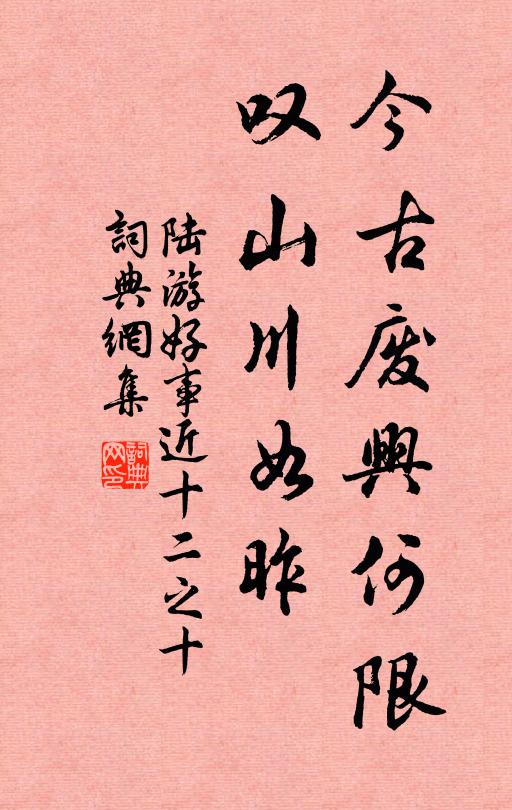 今古废興何限
叹山川如昨
陆游好事近十二之十
詞典網集
詞典网印